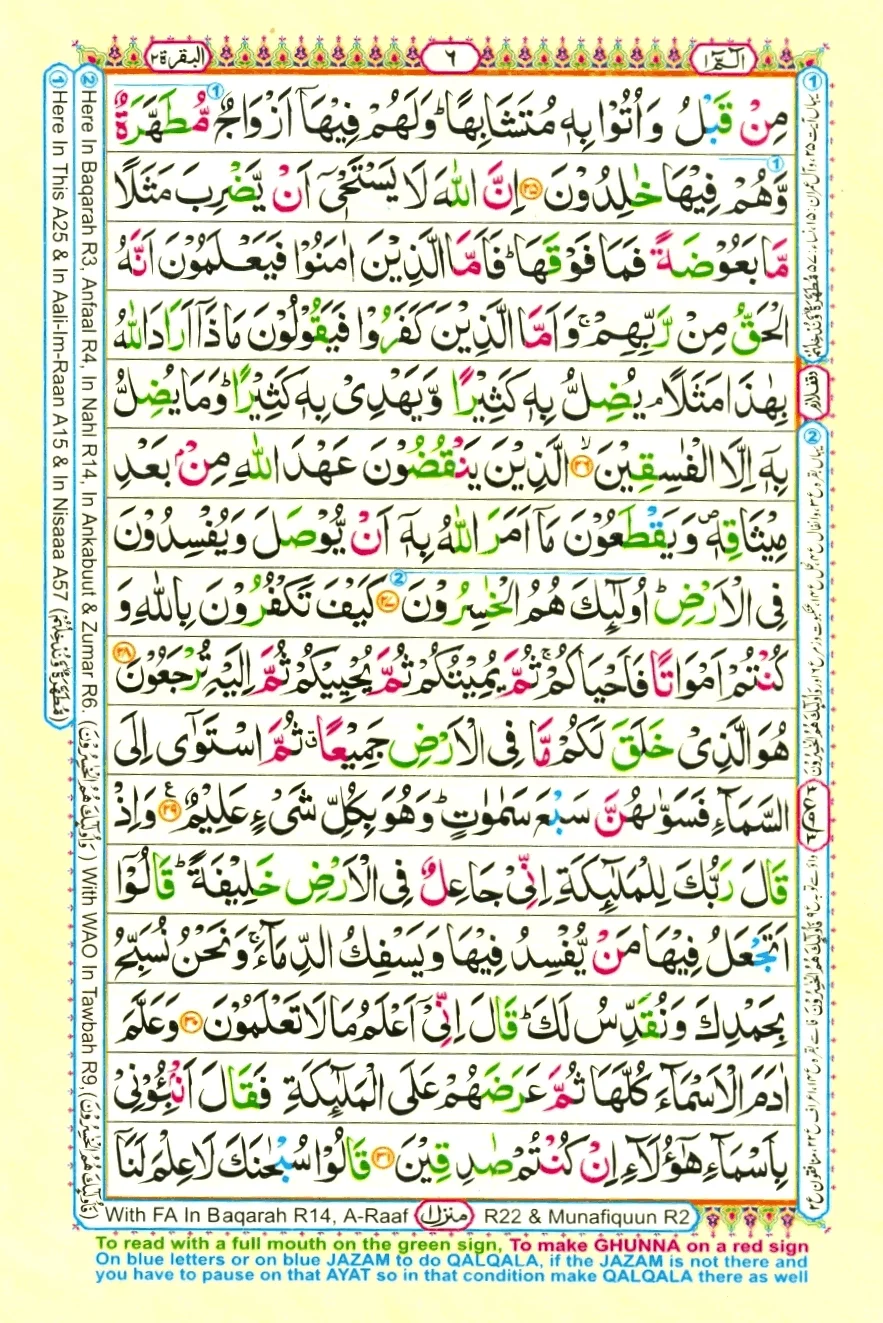 الٓمّٓ ١
٦
البقرة ٢
مِنْ قَبْلُ وَاُتُوْا بِهٖ مُتَشَابِهًا ؕ وَلَهُمْ فِيْهَاۤ اَزْوَاجٌ مُّطَهَّرَةٌ
وَّهُمْ فِيْهَا خٰلِدُوْنَ ﴿۲۵﴾ اِنَّ اللّٰهَ لَا يَسْتَحْىٖۤ اَنْ يَّضْرِبَ مَثَلًا
مَّا بَعُوْضَةً فَمَا فَوْقَهَا ؕ فَاَمَّا الَّذِيْنَ اٰمَنُوْا فَيَعْلَمُوْنَ اَنَّهُ
الْحَقُّ مِنْ رَّبِّهِمْ ۚ وَاَمَّا الَّذِيْنَ كَفَرُوْا فَيَقُوْلُوْنَ مَاذَاۤ اَرَادَ اللّٰهُ
بِهٰذَا مَثَلًا ۘ يُضِلُّ بِهٖ كَثِيْرًا وَّيَهْدِىْ بِهٖ كَثِيْرًا ؕ وَمَا يُضِلُّ
بِهٖۤ اِلَّا الْفٰسِقِيْنَ ۙ﴿۲۶﴾ الَّذِيْنَ يَنْقُضُوْنَ عَهْدَ اللّٰهِ مِنْۢ بَعْدِ
مِيْثَاقِهٖ ۪ وَيَقْطَعُوْنَ مَاۤ اَمَرَ اللّٰهُ بِهٖۤ اَنْ يُّوْصَلَ وَيُفْسِدُوْنَ
فِى الْاَرْضِ ؕ اُولٰٓئِكَ هُمُ الْخٰسِرُوْنَ ﴿۲۷﴾ كَيْفَ تَكْفُرُوْنَ بِاللّٰهِ وَ
كُنْتُمْ اَمْوَاتًا فَاَحْيَاكُمْ ۚ ثُمَّ يُمِيْتُكُمْ ثُمَّ يُحْيِيْكُمْ ثُمَّ اِلَيْهِ تُرْجَعُوْنَ ﴿۲۸﴾
هُوَ الَّذِىْ خَلَقَ لَكُمْ مَّا فِى الْاَرْضِ جَمِيْعًا ۗ ثُمَّ اسْتَوٰۤى اِلَى
السَّمَآءِ فَسَوّٰىهُنَّ سَبْعَ سَمٰوٰتٍ ؕ وَهُوَ بِكُلِّ شَىْءٍ عَلِيْمٌ ﴿۲۹﴾ وَاِذْ
قَالَ رَبُّكَ لِلْمَلٰٓئِكَةِ اِنِّىْ جَاعِلٌ فِى الْاَرْضِ خَلِيْفَةً ؕ قَالُوْۤا
اَتَجْعَلُ فِيْهَا مَنْ يُّفْسِدُ فِيْهَا وَيَسْفِكُ الدِّمَآءَ ۚ وَنَحْنُ نُسَبِّحُ
بِحَمْدِكَ وَنُقَدِّسُ لَكَ ؕ قَالَ اِنِّىْۤ اَعْلَمُ مَا لَا تَعْلَمُوْنَ ﴿۳۰﴾ وَعَلَّمَ
اٰدَمَ الْاَسْمَآءَ كُلَّهَا ثُمَّ عَرَضَهُمْ عَلَى الْمَلٰٓئِكَةِ فَقَالَ اَنْۢبِئُوْنِىْ
بِاَسْمَآءِ هٰٓؤُلَآءِ اِنْ كُنْتُمْ صٰدِقِيْنَ ﴿۳۱﴾ قَالُوْا سُبْحٰنَكَ لَا عِلْمَ لَنَاۤ
① Here In This A25 & In Aali-Im-Raan A15 & In Nisaaa A57 (مُّطَهَّرَةٌ وَّنُدْخِلُهُمْ)
② Here In Baqarah R3, Anfaal R4, In Nahl R14, In Ankabuut & Zumar R6. (وَاُولٰٓئِكَ هُمُ الْخٰسِرُوْنَ) With WAO In Tawbah R9, (فَاُولٰٓئِكَ هُمُ الْخٰسِرُوْنَ)
With FA In Baqarah R14, A-Raaf منزل ١ R22 & Munafiquun R2
To read with a full mouth on the green sign, To make GHUNNA on a red sign
On blue letters or on blue JAZAM to do QALQALA, if the JAZAM is not there and
you have to pause on that AYAT so in that condition make QALQALA there as well